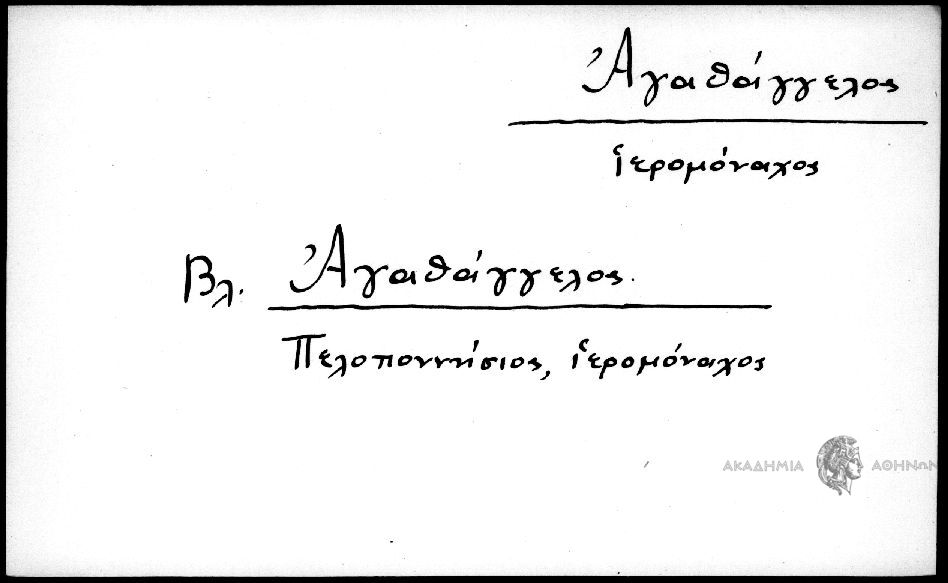 Ἀγαθάγγελος
ἱερομόναχος
Βλ. Ἀγαθάγγελος.
Πελοποννήσιος, ἱερομόναχος
ΑΚΑΔΗΜΙΑ ΑΘΗΝΩΝ